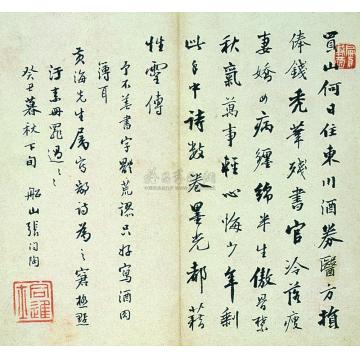 買山何日住東川酒券醫方損
俸錢禿筆殘書官冷落瘦
妻嬌女病纏綿半生傲骨禁
秋氣萬事輕心悔少年剩
此手中詩數卷墨光都藉
性靈傳
予不善書字獸荒謬只好寫酒肉
簿耳
黃海先生屬寫鄙詩為之窘極
汙素冊罪過之之
癸丑暮秋下旬 船山張問陶